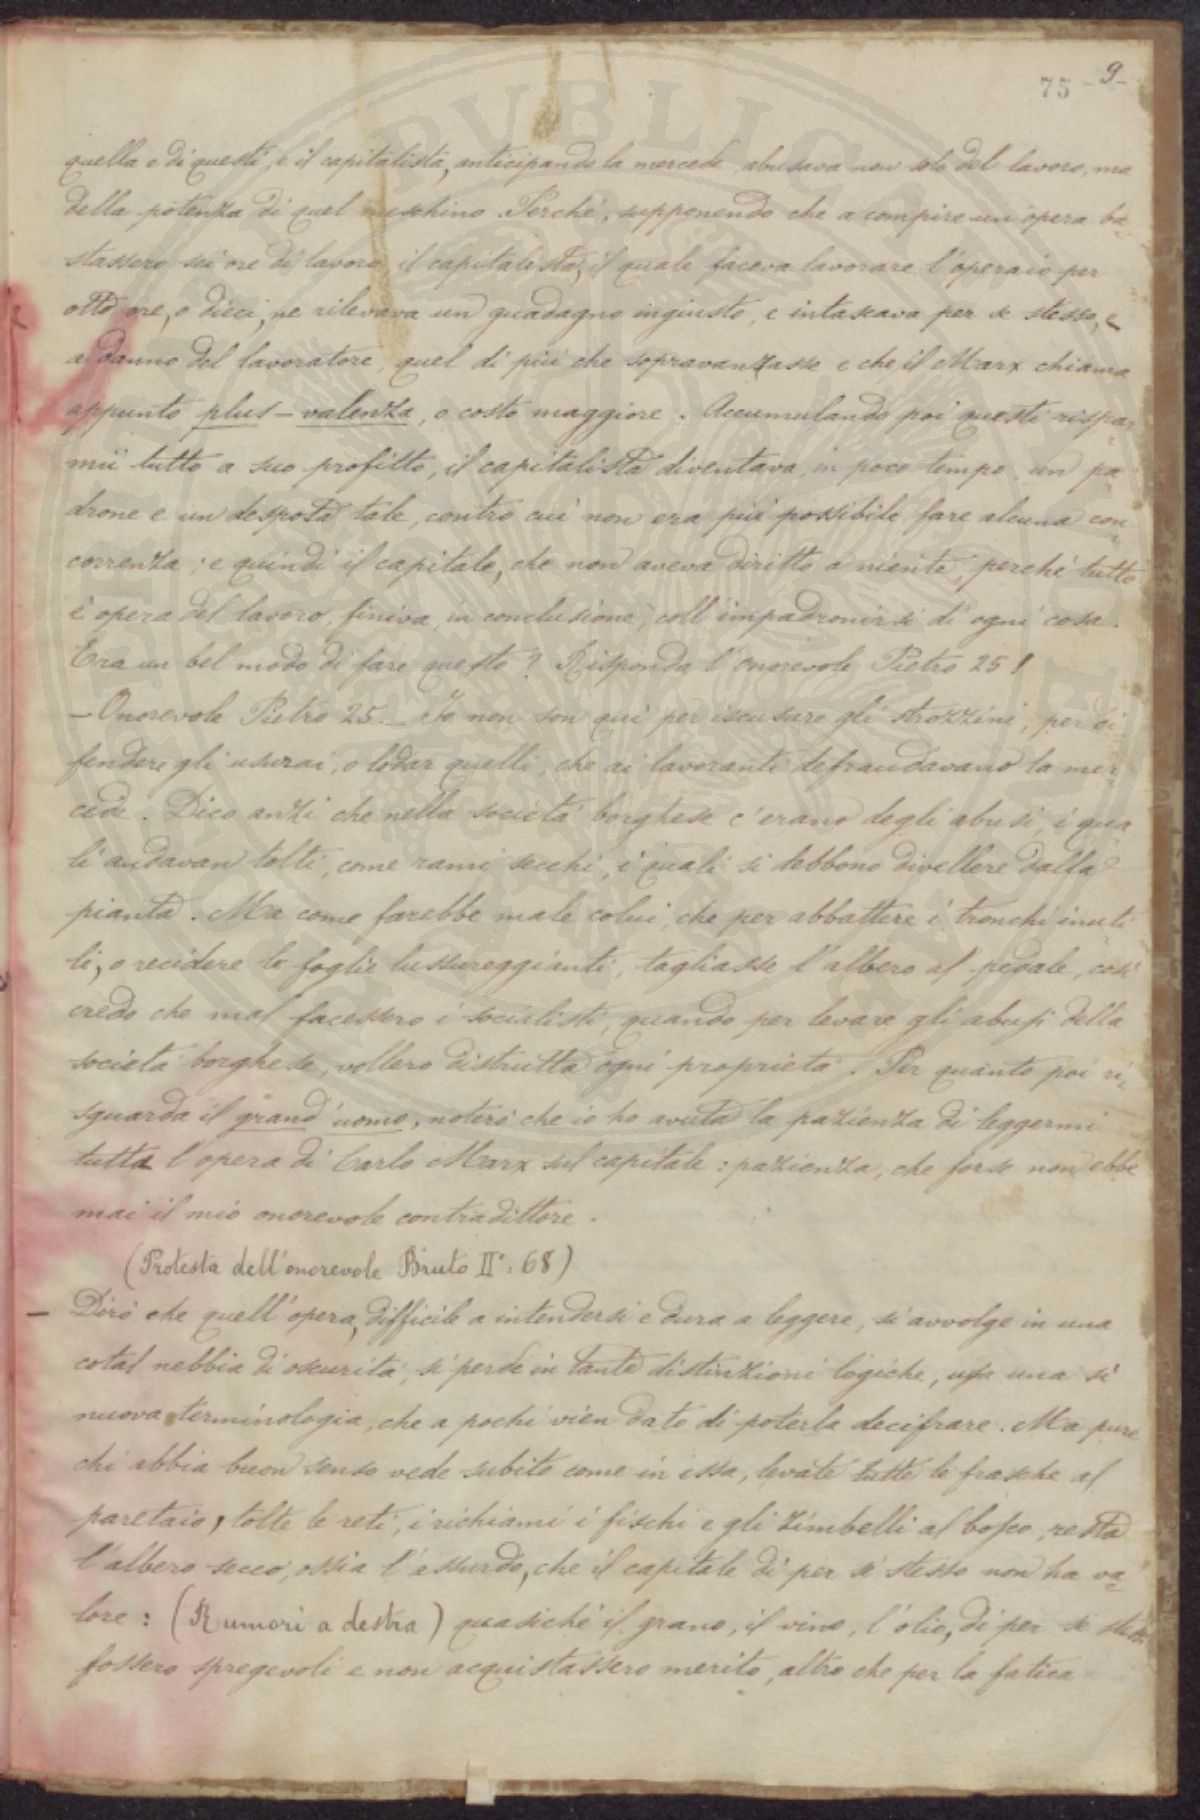 75 - 9 -
quella e di questi, e il capitalista, anticipando la mercede, abusava non solo del lavoro, ma
della potenza di quel meschino. Perchè, supponendo che a compire un'opera ba-
stassero sei ore di lavoro, il capitalista, il quale faceva lavorare l'operaio per
otto ore, o dieci, ne rilevava un guadagno ingiusto, e intascava per se stesso, e
a danno del lavoratore, quel di più che sopravanzasse e che il Marx chiama
appunto plus-valenza, o costo maggiore. Accumulando poi questi rispar-
mii tutto a suo profitto, il capitalista diventava, in poco tempo, un pa-
drone e un despota tale, contro cui non era più possibile fare alcuna con-
correnza; e quindi il capitale, che non aveva diritto a niente, perchè tutto
è opera del lavoro, finiva, in conclusione, coll'impadronirsi di ogni cosa.
Era un bel modo di fare questo? Risponda l'onorevole Pietro 25!
— Onorevole Pietro 25. — Io non son qui per iscusare gli strozzini, per di-
fendere gli usurai, o lodar quelli, che ai lavoranti defraudavano la mer-
cede. Dico anzi che nella società borghese c'erano degli abusi, i qua-
li andavan tolti, come rami secchi, i quali si debbono divellere dalla
pianta. Ma come farebbe male colui, che per abbattere i tronchi inuti-
li, o recidere le foglie lussureggianti, tagliasse l'albero al pedale, così
credo che mal facessero i socialisti, quando per levare gli abusi della
società borghese, vollero distrutta ogni proprietà. Per quanto poi ri-
sguarda il grand'uomo, noterò che io ho avuta la pazienza di leggermi
tutta l'opera di Carlo Marx sul capitale: pazienza, che forse non ebbe
mai il mio onorevole contradittore.
(Protesta dell'onorevole Bruto II°: 68)
— Dirò che quell'opera, difficile a intendersi e dura a leggere, si avvolge in una
cotal nebbia di oscurità, si perde in tante distinzioni logiche, usa una sì
nuova terminologia, che a pochi vien dato di poterla decifrare. Ma pure
chi abbia buon senso vede subito come in essa, levate tutte le frasche al
paretaio, tolte le reti, i richiami i fischi e gli zimbelli al bosco, resta
l'albero secco, ossia l'assurdo, che il capitale di per sè stesso non ha va-
lore: (Rumori a destra) quasichè il grano, il vino, l'olio, di per se stessi
fossero spregevoli e non acquistassero merito, altro che per la fatica